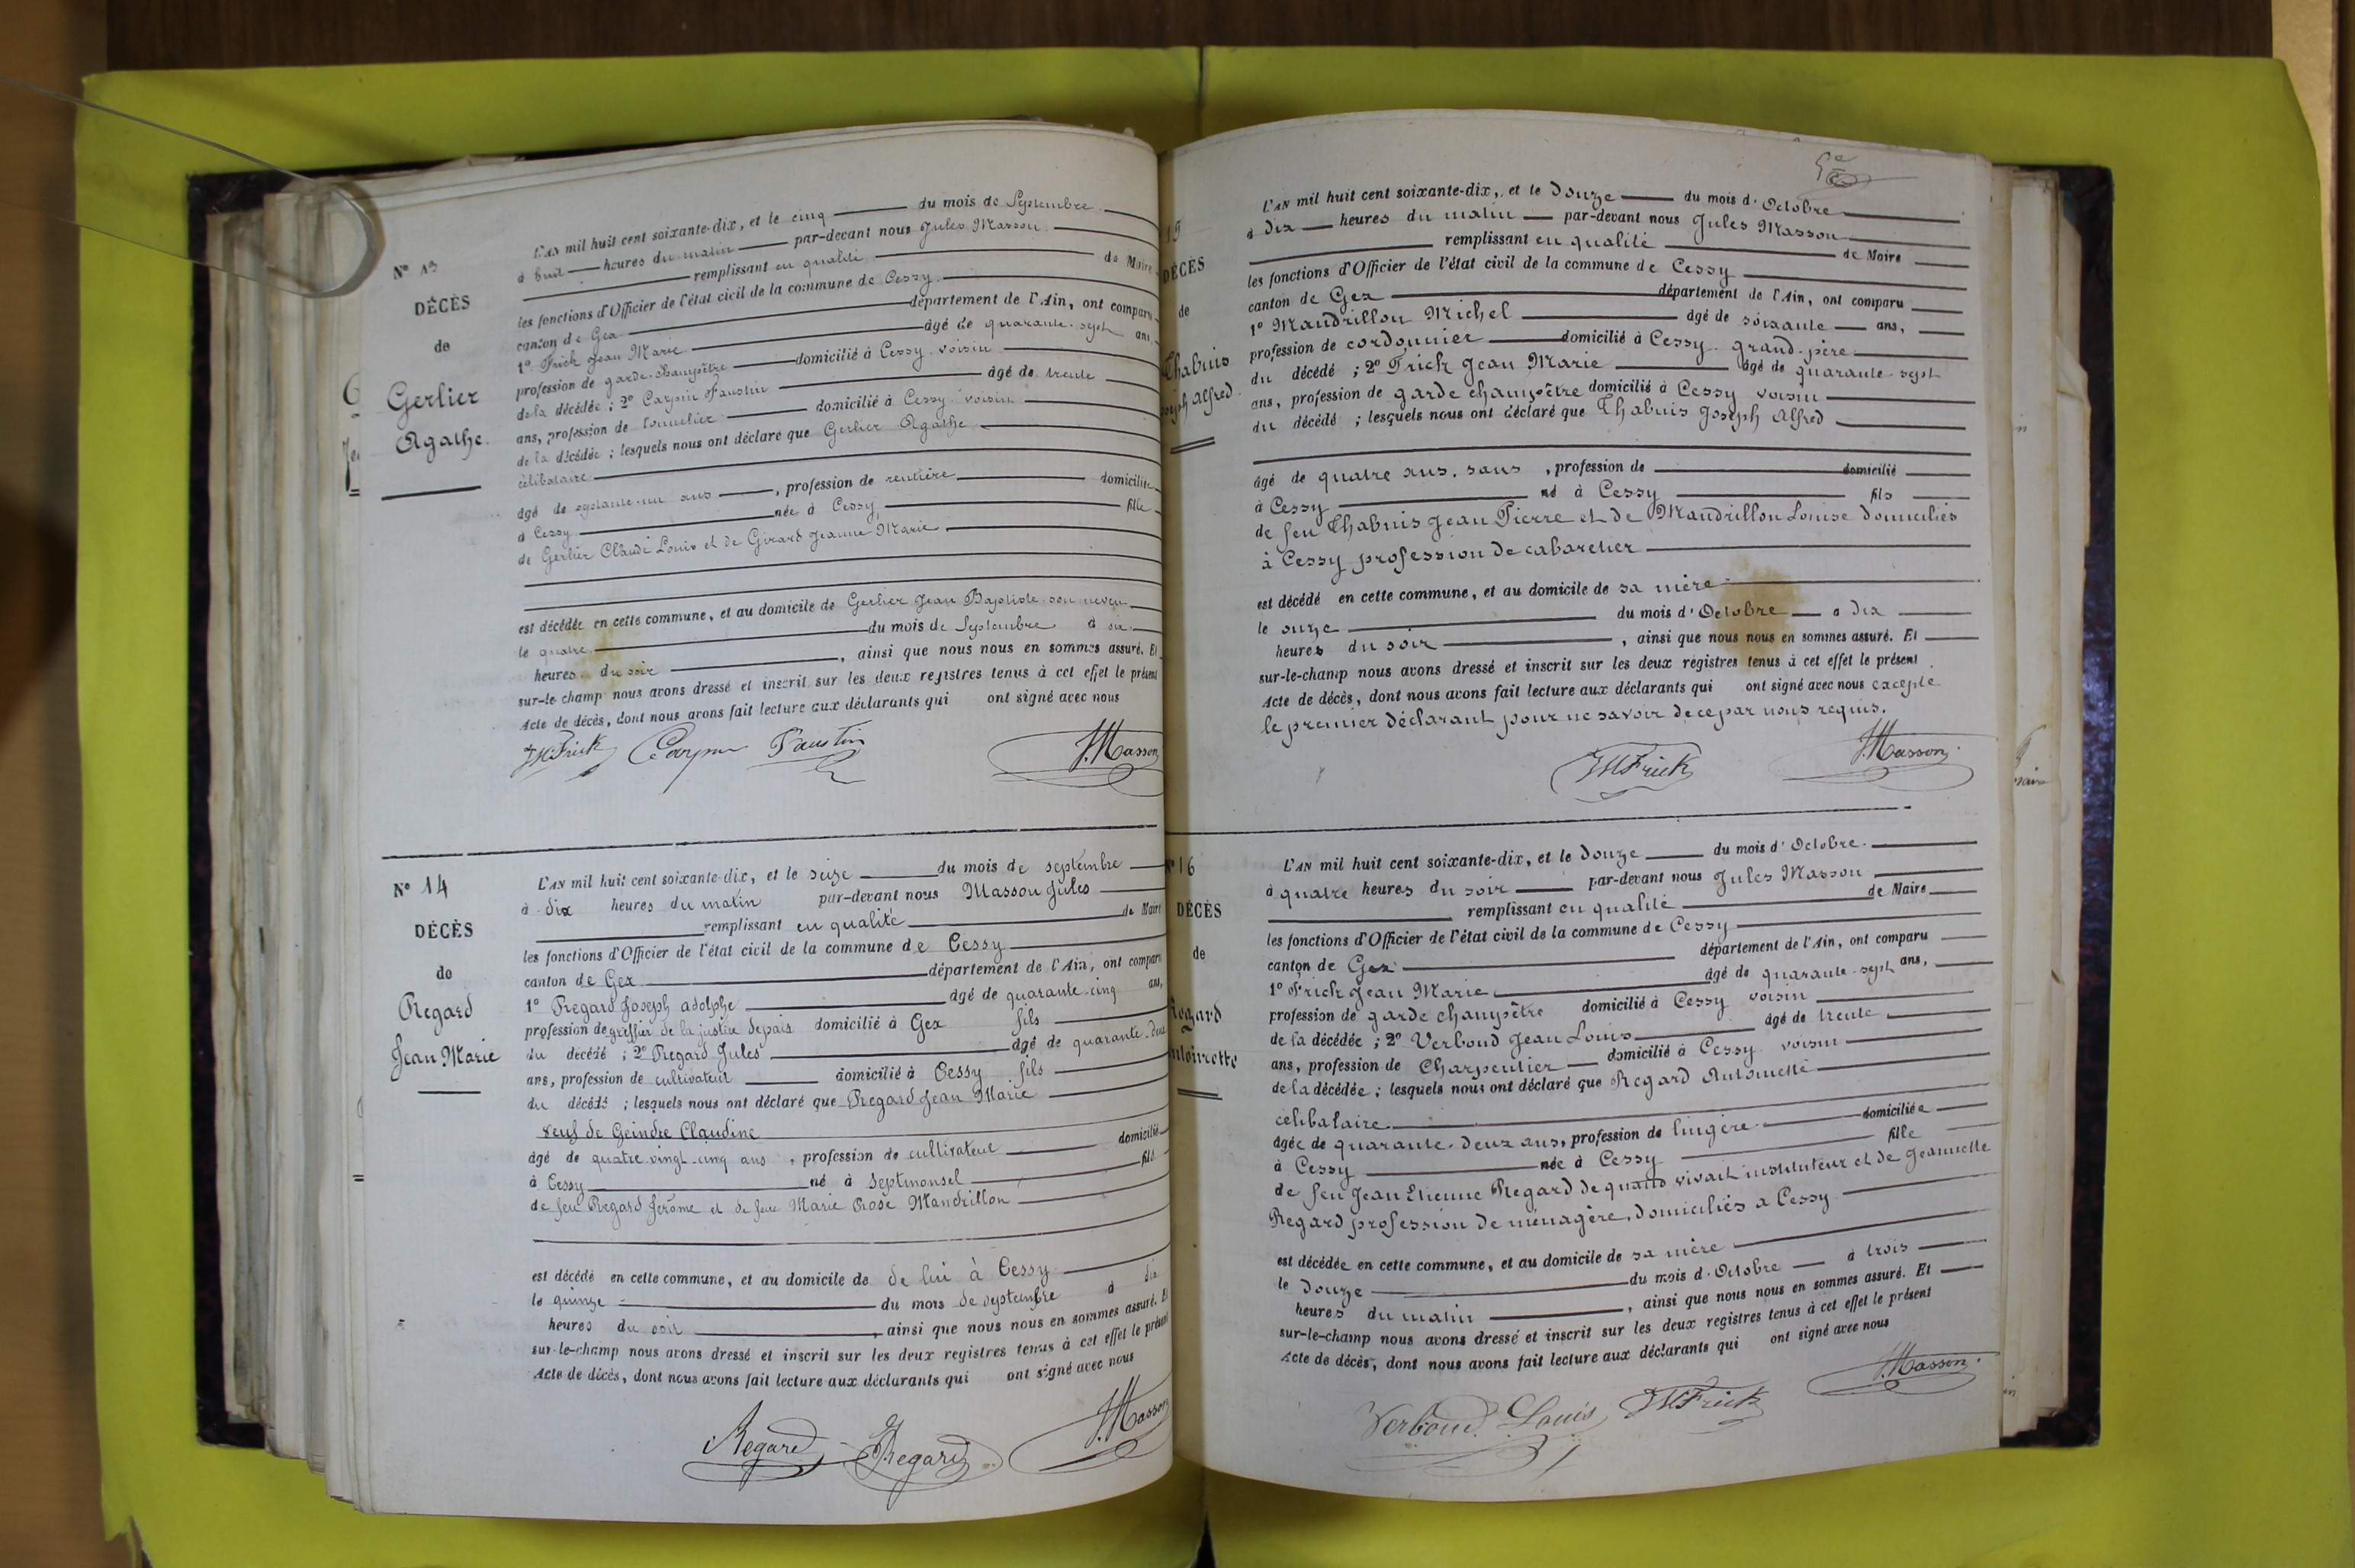 N° 13
DÉCÈS
de
Gerlier
Agathe
L'AN mil huit cent soixante-dix, et le cinq du mois de Septembre
à huit heures du matin par-devant nous Jules Masson
remplissant en qualité de Maire
les fonctions d'Officier de l'état civil de la commune de Cessy
canton de Gex département de l'Ain, ont comparu
1° Frich Jean Marie âgé de quarante-sept ans,
profession de garde-champêtre domicilié à Cessy voisin
de la décédée ; 2° Carpin Faustin âgé de trente
ans, profession de tonnelier domicilié à Cessy voisin
de la décédée ; lesquels nous ont déclaré que Gerlier Agathe
célibataire
âgé de septante-un ans, profession de rentière domiciliée
à Cessy née à Cessy fille
de Gerlier Claude Louis et de Girard Jeanne Marie
est décédée en cette commune, et au domicile de Gerlier Jean Baptiste son neveu
le quatre du mois de Septembre à six
heures du soir, ainsi que nous nous en sommes assuré. Et
sur-le champ nous avons dressé et inscrit sur les deux registres tenus à cet effet le présent
Acte de décès, dont nous avons fait lecture aux déclarants qui ont signé avec nous
JMFrick Carpin Faustin J.Masson
N° 14
DÉCÈS
de
Regard
Jean Marie
L'AN mil huit cent soixante-dix, et le seize du mois de septembre
à dix heures du matin par-devant nous Masson Jules
remplissant en qualité de Maire
les fonctions d'Officier de l'état civil de la commune de Cessy
canton de Gex département de l'Ain, ont comparu
1° Regard Joseph adolphe âgé de quarante-cinq ans,
profession de greffier de la justice de paix domicilié à Gex fils
du décédé ; 2° Regard Jules âgé de quarante-deux
ans, profession de cultivateur domicilié à Cessy fils
du décédé ; lesquels nous ont déclaré que Regard Jean Marie
veuf de Geindre Claudine
âgé de quatre-vingt-cinq ans, profession de cultivateur domicilié
à Cessy né à Septmonsel fils
de feu Regard Jérôme et de feue Marie Rose Mandrillon
est décédé en cette commune, et au domicile de de lui à Cessy
le quinze du mois de septembre à dix
heures du soir, ainsi que nous nous en sommes assuré. Et
sur-le-champ nous avons dressé et inscrit sur les deux registres tenus à cet effet le présent
Acte de décès, dont nous avons fait lecture aux déclarants qui ont signé avec nous
Regard Regard J.Masson
15
DÉCÈS
de
Thabuis
Joseph Alfred
L'AN mil huit cent soixante-dix, et le douze du mois d'Octobre
à dix heures du matin par-devant nous Jules Masson
remplissant en qualité de Maire
les fonctions d'Officier de l'état civil de la commune de Cessy
canton de Gex département de l'Ain, ont comparu
1° Mandrillon Michel âgé de soixante ans,
profession de cordonnier domicilié à Cessy grand-père
du décédé ; 2° Frich Jean Marie âgé de quarante-sept
ans, profession de garde champêtre domicilié à Cessy voisin
du décédé ; lesquels nous ont déclaré que Thabuis Joseph Alfred
âgé de quatre ans, sans, profession de domicilié
à Cessy né à Cessy fils
de feu Thabuis Jean Pierre et de Mandrillon Louise domiciliés
à Cessy profession de cabaretier
est décédé en cette commune, et au domicile de sa mère
le onze du mois d'Octobre à dix
heures du soir, ainsi que nous nous en sommes assuré. Et
sur-le-champ nous avons dressé et inscrit sur les deux registres tenus à cet effet le présent
Acte de décès, dont nous avons fait lecture aux déclarants qui ont signé avec nous excepté
le premier déclarant pour ne savoir de ce par nous requis.
JMFrick J.Masson
N° 16
DÉCÈS
de
Regard
Antoinette
L'AN mil huit cent soixante-dix, et le douze du mois d'Octobre
à quatre heures du soir par-devant nous Jules Masson
remplissant en qualité de Maire
les fonctions d'Officier de l'état civil de la commune de Cessy
canton de Gex département de l'Ain, ont comparu
1° Frich Jean Marie âgé de quarante-sept ans,
profession de garde champêtre domicilié à Cessy voisin
de la décédée ; 2° Verboud Jean Louis âgé de trente
ans, profession de Charpentier domicilié à Cessy voisin
de la décédée ; lesquels nous ont déclaré que Regard Antoinette
célibataire
âgée de quarante-deux ans, profession de lingère domiciliée
à Cessy née à Cessy fille
de feu Jean Etienne Regard de quand vivait instituteur et de Jeannette
Regard profession de ménagère, domiciliés à Cessy
est décédée en cette commune, et au domicile de sa mère
le douze du mois d'Octobre à trois
heures du matin, ainsi que nous nous en sommes assuré. Et
sur-le-champ nous avons dressé et inscrit sur les deux registres tenus à cet effet le présent
Acte de décès, dont nous avons fait lecture aux déclarants qui ont signé avec nous
Verboud Louis JMFrick J.Masson